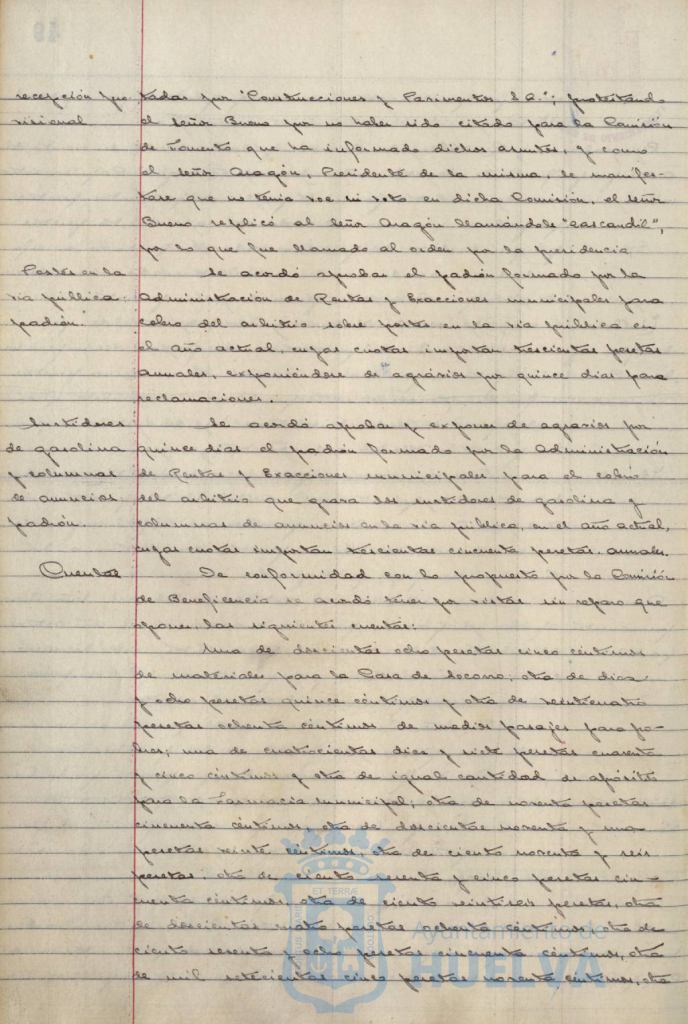 recepción pro-
visional
tadas por "Construcciones y Pavimentos S.A."; protestando
el señor Bueno por no haber sido citado para la Comisión
de Fomento que ha informado dichos asuntos, y como
el señor Aragón, Presidente de la misma, le manifes-
tase que no tenía voz ni voto en dicha Comisión, el señor
Bueno replicó al señor Aragón llamándole "zascandil",
por lo que fue llamado al orden por la presidencia
Postes en la
vía pública:
padrón.
Se acordó aprobar el padrón formado por la
Administración de Rentas y Exacciones municipales para
cobro del arbitrio sobre postes en la vía pública en
el año actual, cuyas cuotas importan trescientas pesetas
anuales, exponiéndose de agravios por quince días para
reclamaciones.
Surtidores
de gasolina
y columnas
de anuncios
padrón.
Se acordó aprobar y exponer de agravios por
quince días el padrón formado por la Administración
de Rentas y Exacciones municipales para el cobro
del arbitrio que grava los surtidores de gasolina y
columnas de anuncios en la vía pública, en el año actual,
cuyas cuotas importan trescientas cincuenta pesetas anuales.
Cuentas
De conformidad con lo propuesto por la Comisión
de Beneficencia se acordó tener por vistas sin reparo que
oponer, las siguientes cuentas:
Una de doscientas ocho pesetas cinco céntimos
de materiales para la Casa de Socorro; otra de diez
y ocho pesetas quince céntimos y otra de veinticuatro
pesetas ochenta céntimos de medios pasajes para po-
bres; una de cuatrocientas diez y siete pesetas cuarenta
y cinco céntimos y otra de igual cantidad de apósitos
para la Farmacia municipal; otra de noventa pesetas
cincuenta céntimos, otra de doscientas noventa y una
pesetas veinte céntimos, otra de ciento noventa y seis
pesetas, otra de ciento sesenta y cinco pesetas cin-
cuenta céntimos, otra de ciento veintiseis pesetas, otra
de doscientas cuatro pesetas ochenta céntimos, otra de
ciento sesenta y ocho pesetas cincuenta céntimos, otra
de mil setecientas cinco pesetas noventa céntimos, otra
ET TERRÆ
Ayuntamiento de
HUELVA